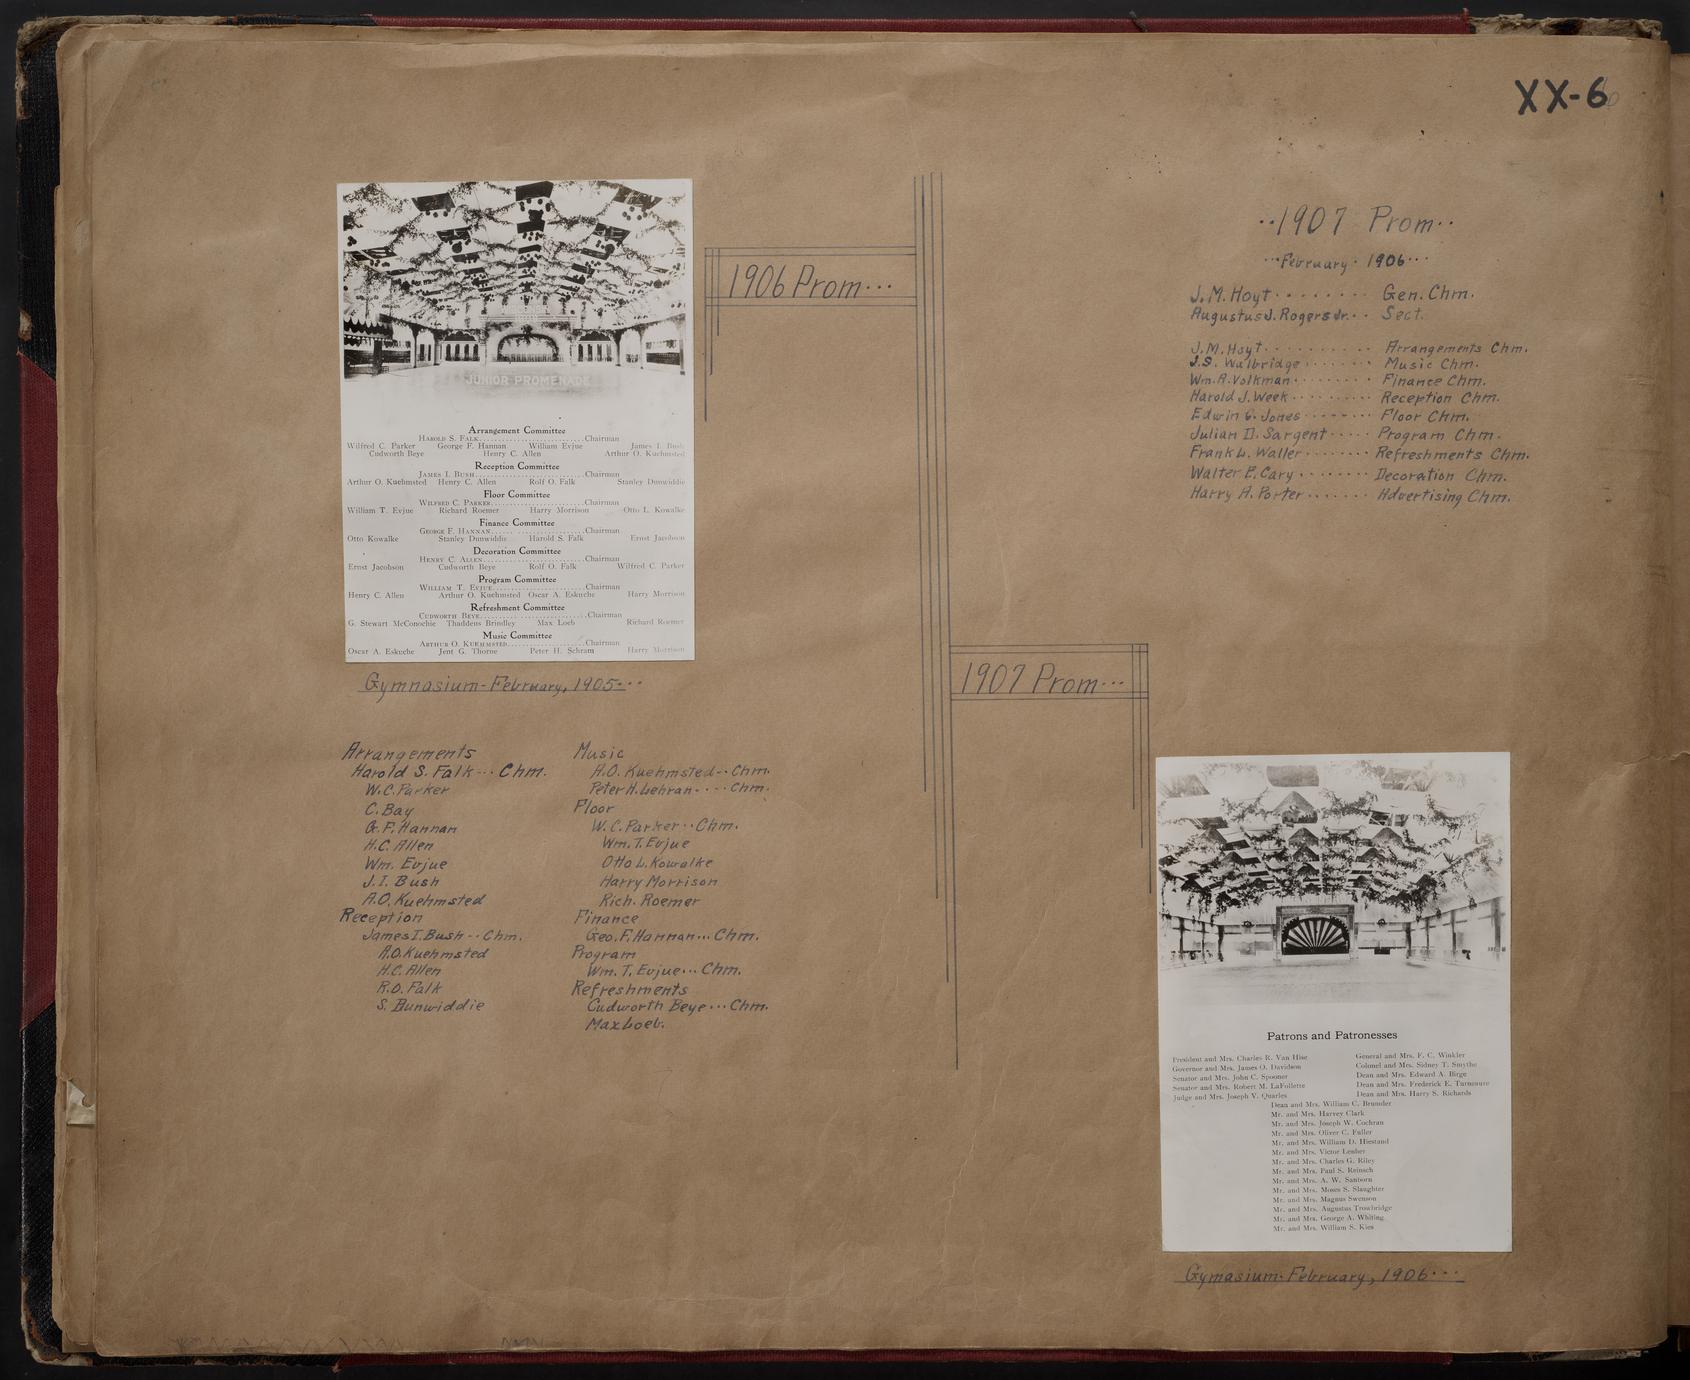 XX-6
JUNIOR PROMENADE
Arrangement Committee
HAROLD S. FALK..............................Chairman
Wilfred C. Parker George F. Hannan William Evjue James I. Bush
Cudworth Beye Henry C. Allen Arthur O. Kuehmsted
Reception Committee
JAMES I. BUSH..............................Chairman
Arthur O. Kuehmsted Henry C. Allen Rolf O. Falk Stanley Dunwiddie
Floor Committee
WILFRED C. PARKER..............................Chairman
William T. Evjue Richard Roemer Harry Morrison Otto L. Kowalke
Finance Committee
GEORGE F. HANNAN..............................Chairman
Otto Kowalke Stanley Dunwiddie Harold S. Falk Ernst Jacobson
Decoration Committee
HENRY C. ALLEN..............................Chairman
Ernst Jacobson Cudworth Beye Rolf O. Falk Wilfred C. Parker
Program Committee
WILLIAM T. EVJUE..............................Chairman
Henry C. Allen Arthur O. Kuehmsted Oscar A. Eskuche Harry Morrison
Refreshment Committee
CUDWORTH BEYE..............................Chairman
G. Stewart McConochie Thaddeus Brindley Max Loeb Richard Roemer
Music Committee
ARTHUR O. KUEHMSTED..............................Chairman
Oscar A. Eskuche Jent G. Thorne Peter H. Schram Harry Morrison
Gymnasium-February, 1905...
1906 Prom...
Arrangements
Harold S. Falk... Chm.
W.C. Parker
C. Bay
G.F. Hannan
H.C. Allen
Wm. Evjue
J.I. Bush
A.O. Kuehmsted
Reception
James I. Bush.. Chm.
A.O. Kuehmsted
H.C. Allen
R.O. Falk
S. Dunwiddie
Music
A.O. Kuehmsted.. Chm.
Peter H. Lehran.... Chm.
Floor
W.C. Parker.. Chm.
Wm. T. Evjue
Otto L. Kowalke
Harry Morrison
Rich. Roemer
Finance
Geo. F. Hannan... Chm.
Program
Wm. T. Evjue... Chm.
Refreshments
Cudworth Beye... Chm.
Max Loeb.
..1907 Prom..
...February. 1906...
J.M. Hoyt........ Gen. Chm.
Augustus J. Rogers Jr... Sect.
J.M. Hoyt.......... Arrangements Chm.
J.S. Walbridge....... Music Chm.
Wm. R. Volkman........ Finance Chm.
Harold J. Week......... Reception Chm.
Edwin G. Jones....... Floor Chm.
Julian D. Sargent..... Program Chm.
Frank L. Waller........ Refreshments Chm.
Walter E. Cary........ Decoration Chm.
Harry A. Porter....... Advertising Chm.
1907 Prom...
Patrons and Patronesses
President and Mrs. Charles R. Van Hise General and Mrs. F. C. Winkler
Governor and Mrs. James O. Davidson Colonel and Mrs. Sidney T. Smythe
Senator and Mrs. John C. Spooner Dean and Mrs. Edward A. Birge
Senator and Mrs. Robert M. LaFollette Dean and Mrs. Frederick E. Turneaure
Judge and Mrs. Joseph V. Quarles Dean and Mrs. Harry S. Richards
Dean and Mrs. William C. Brumder
Mr. and Mrs. Harvey Clark
Mr. and Mrs. Joseph W. Cochran
Mr. and Mrs. Oliver C. Fuller
Mr. and Mrs. William D. Hiestand
Mr. and Mrs. Victor Lenher
Mr. and Mrs. Charles G. Riley
Mr. and Mrs. Paul S. Reinsch
Mr. and Mrs. A. W. Sanborn
Mr. and Mrs. Moses S. Slaughter
Mr. and Mrs. Magnus Swenson
Mr. and Mrs. Augustus Trowbridge
Mr. and Mrs. George A. Whiting
Mr. and Mrs. William S. Kies
Gymasium-February, 1906...